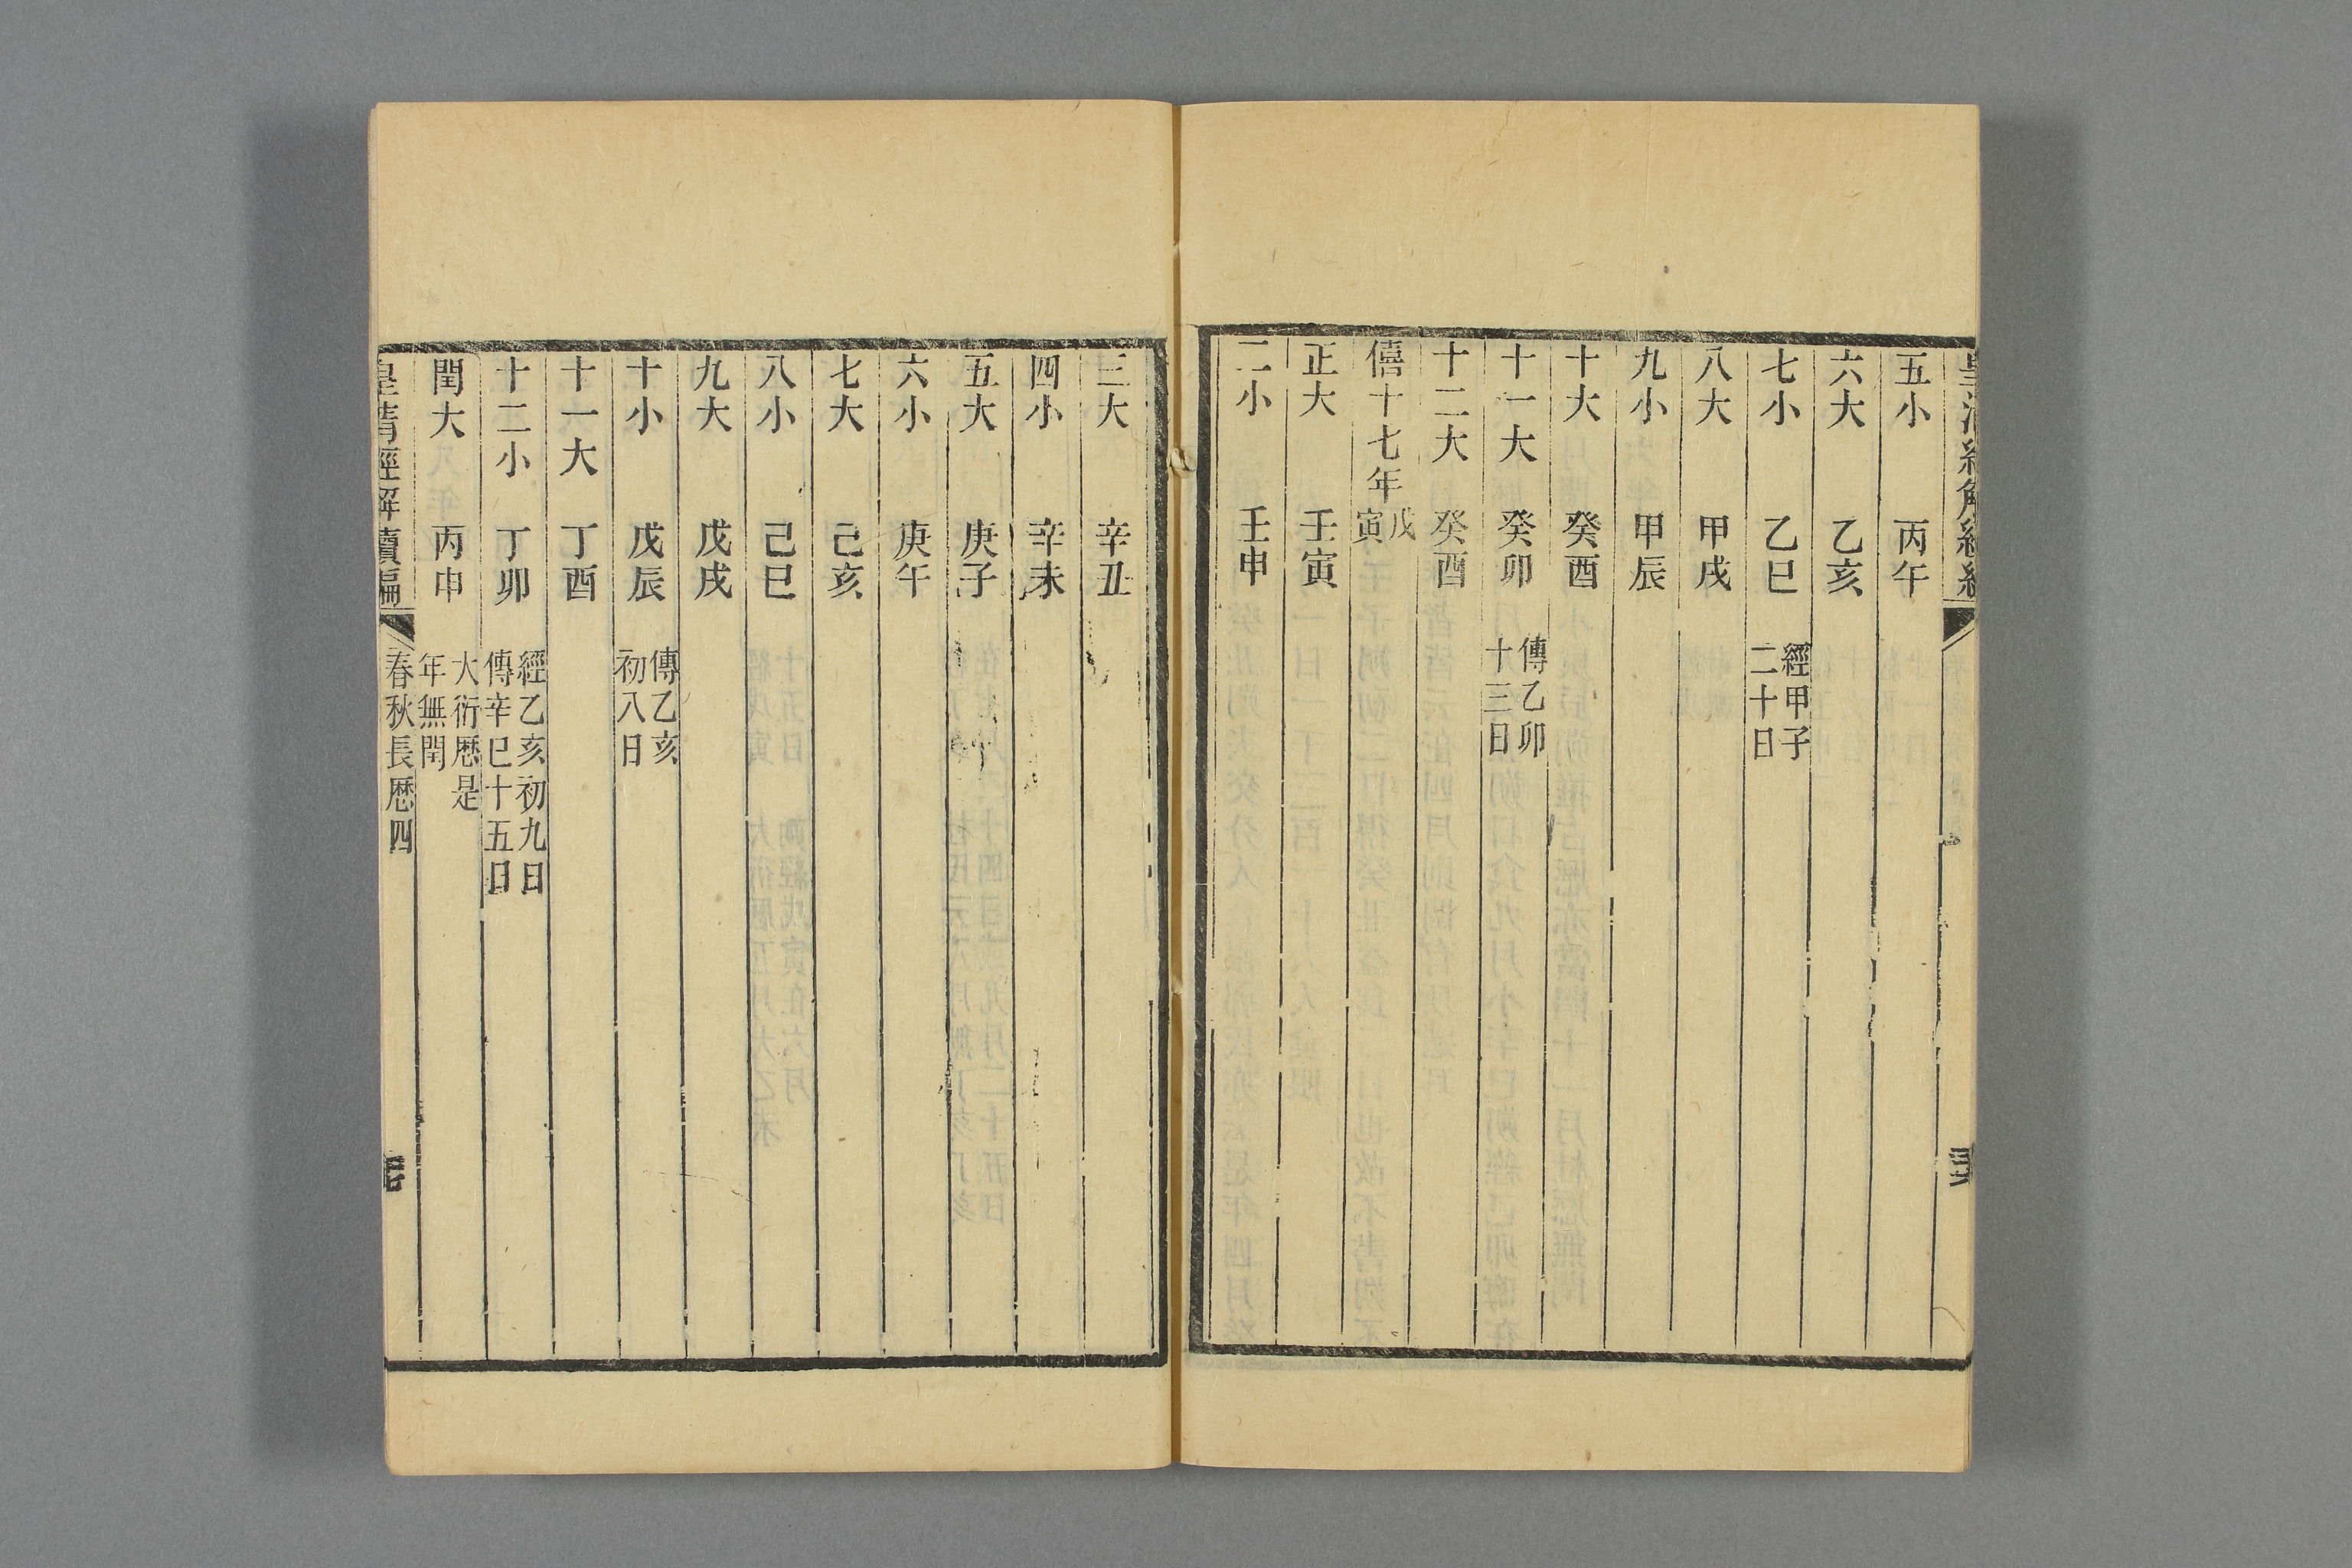 五小 丙午
六大 乙亥
七小 乙巳 經甲子
二十日
八大 甲戌
九小 甲辰
十大 癸酉
十一大 癸卯 傳乙卯
十三日
十二大 癸酉
僖十七年 戊
寅
正大 壬寅
二小 壬申
三大 辛丑
四小 辛未
五大 庚子
六小 庚午
七大 己亥
八小 己巳
九大 戊戌
十小 戊辰 傳乙亥
初八日
十一大 丁酉
十二小 丁卯 經乙亥初九日
傳辛巳十五日
閏大 丙申 大衍厯是
年無閏
皇清經解續編 春秋長厯四